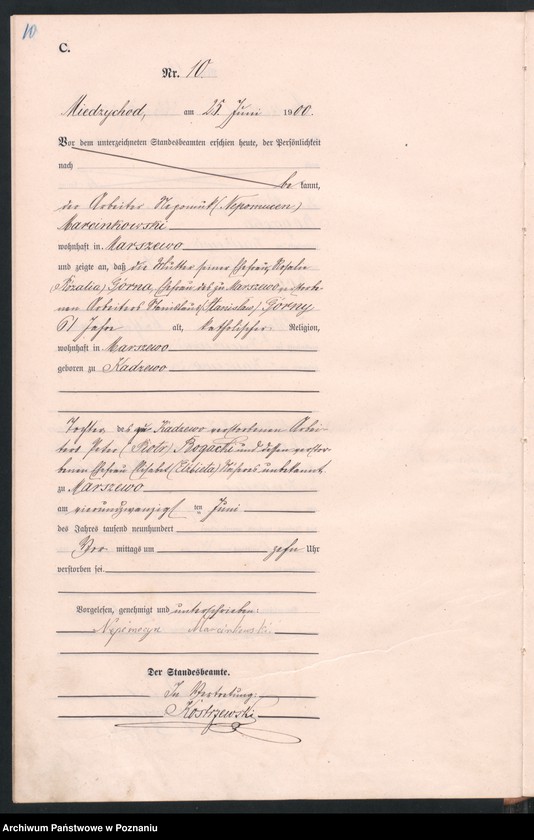 10
C.
Nr. 10.
Miedzychod, am 25. Juni 1900.
Vor dem unterzeichneten Standesbeamten erschien heute, der Persönlichkeit
nach
be kannt,
der Arbeiter Nepomuk (Nepomucen)
Marcinkowski
wohnhaft in Marszewo
und zeigte an, daß die Mutter seiner Ehefrau, Rosalie
(Rozalia) Górna, Ehefrau des zu Marszewo verstorbe-
nen Arbeiters Stanislaus (Stanisław) Górny
61 Jahre alt, katholischer Religion,
wohnhaft in Marszewo
geboren zu Kadzewo
Tochter des zu Kadzewo verstorbenen Arbei-
ters Peter (Piotr) Bogacki und dessen verstor-
benen Ehefrau unbekannt
zu Marszewo
am vierundzwanzigsten Juni
des Jahres tausend neunhundert
Vor mittags um zehn Uhr
verstorben sei.
Vorgelesen, genehmigt und unterschrieben:
Marcinkowski
Der Standesbeamte.
In Vertretung:
Kostrzewski
Archiwum Państwowe w Poznaniu